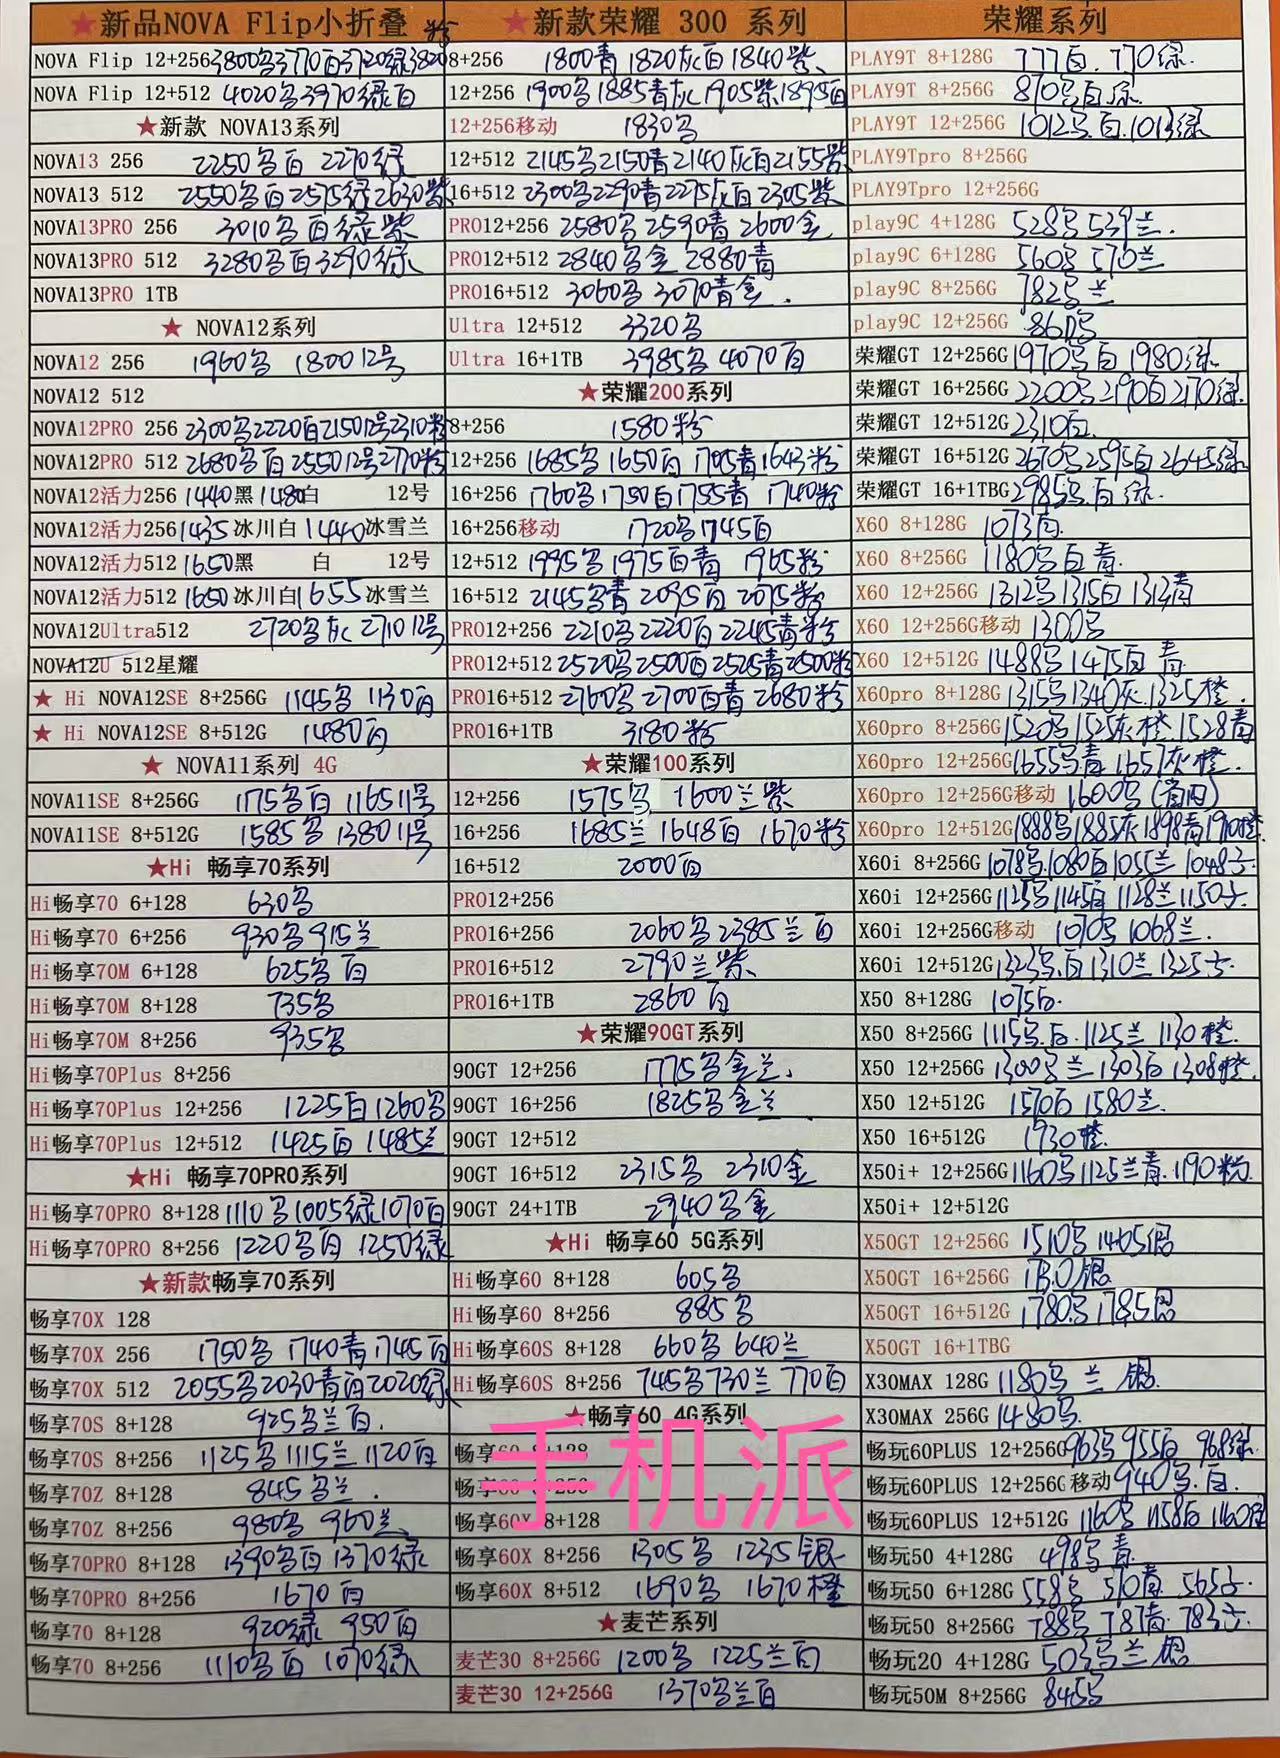 ★新品NOVA Flip小折叠 粉
NOVA Flip 12+256 3800另3770百3720绿3820
NOVA Flip 12+512 4020另3970绿百
★新款 NOVA13系列
NOVA13 256 2250另百 2270绿
NOVA13 512 2550另百2575绿2630紫
NOVA13PRO 256 3010另百绿紫
NOVA13PRO 512 3280另百3290绿
NOVA13PRO 1TB
★ NOVA12系列
NOVA12 256 1960另 1800 12号
NOVA12 512
NOVA12PRO 256 2300另2220百215012号2310粉
NOVA12PRO 512 2680另百2550 12号2770粉
NOVA12活力256 1440黑1480白 12号
NOVA12活力256 1435冰川白1440冰雪兰
NOVA12活力512 1650黑 白 12号
NOVA12活力512 1650冰川白1655冰雪兰
NOVA12Ultra512 2720另灰 2710 12号
NOVA12U 512星耀
★ Hi NOVA12SE 8+256G 1145另 1130百
★ Hi NOVA12SE 8+512G 1480百
★ NOVA11系列 4G
NOVA11SE 8+256G 1175另百 1165 11号
NOVA11SE 8+512G 1585另 1380 11号
★Hi 畅享70系列
Hi畅享70 6+128 630另
Hi畅享70 6+256 930另915兰
Hi畅享70M 6+128 625另百
Hi畅享70M 8+128 735另
Hi畅享70M 8+256 935另
Hi畅享70Plus 8+256
Hi畅享70Plus 12+256 1225百1260另
Hi畅享70Plus 12+512 1425百1485兰
★Hi 畅享70PRO系列
Hi畅享70PRO 8+128 1110另1005绿1070百
Hi畅享70PRO 8+256 1220另百 1250绿
★新款畅享70系列
畅享70X 128
畅享70X 256 1750另 1740青1745百
畅享70X 512 2055另2030青百2020绿
畅享70S 8+128 925另兰百.
畅享70S 8+256 1125另1115兰1120百
畅享70Z 8+128 845另兰.
畅享70Z 8+256 980另 960兰
畅享70PRO 8+128 1390另百1370绿
畅享70PRO 8+256 1670百
畅享70 8+128 920绿 950百
畅享70 8+256 1110另百 1070绿
★新款荣耀 300 系列
8+256 1800青1820灰百1840紫
12+256 1900另1885青灰1905紫1895百
12+256移动 1830另
12+512 2145另2150青2140灰百2155紫
16+512 2300另2290青2275灰百2305紫
PRO12+256 2580另2590青2600金
PRO12+512 2840另金 2880青
PRO16+512 3060另 3070青金.
Ultra 12+512 3320另
Ultra 16+1TB 3985另4070百
★荣耀200系列
8+256 1580粉
12+256 1685另1650百1705青1643粉
16+256 1760另1750百1755青 1740粉
16+256移动 1720另1745百
12+512 1995另1975百青 1965粉
16+512 2145另青2095百2075粉
PRO12+256 2210另2220百2245青粉
PRO12+512 2520另2500百2525青2500粉
PRO16+512 2760另2700百青2680粉
PRO16+1TB 3180粉
★荣耀100系列
12+256 1575另 1600兰紫
16+256 1685兰1648百 1670粉
16+512 2000百
PRO12+256
PRO16+256 2060另2385兰百
PRO16+512 2790兰紫
PRO16+1TB 2860百
★荣耀90GT系列
90GT 12+256 1775另金兰.
90GT 16+256 1825另金兰
90GT 12+512
90GT 16+512 2315另 2310金
90GT 24+1TB 2940另金
★Hi 畅享60 5G系列
Hi畅享60 8+128 605另
Hi畅享60 8+256 885另
Hi畅享60S 8+128 660另640兰
Hi畅享60S 8+256 745另730兰770百
★畅享60 4G系列
畅享60 8+128
畅享60 8+256
畅享60X 8+128
畅享60X 8+256 1305另 1235银
畅享60X 8+512 1690另 1670橙
★麦芒系列
麦芒30 8+256G 1200另 1225兰百
麦芒30 12+256G 1370另兰百
手机派
荣耀系列
PLAY9T 8+128G 777百.770绿.
PLAY9T 8+256G 870另百绿
PLAY9T 12+256G 1012另.百.1013绿
PLAY9Tpro 8+256G
PLAY9Tpro 12+256G
play9C 4+128G 528另539兰.
play9C 6+128G 560另570兰
play9C 8+256G 782另兰
play9C 12+256G 860另
荣耀GT 12+256G 1970另百1980绿.
荣耀GT 16+256G 2200另2190百2170绿.
荣耀GT 12+512G 2310百.
荣耀GT 16+512G 2670另2595百2645绿
荣耀GT 16+1TBG 2985另.百绿.
X60 8+128G 1073百.
X60 8+256G 1180另百青.
X60 12+256G 1312另1315百1313青
X60 12+256G移动 1300另
X60 12+512G 1488另1475百青
X60pro 8+128G 1315另1340灰.1325橙.
X60pro 8+256G 1520另1525灰橙.1528青
X60pro 12+256G 1655另青1657灰橙.
X60pro 12+256G移动 1600另
X60pro 12+512G 1888另1885灰1898青1910橙
X60i 8+256G 1078另.1080百1055兰1048子.
X60i 12+256G 1125另1145百1128兰1150子.
X60i 12+256G移动 1070另1068兰.
X60i 12+512G 1323另.百1310兰1325子.
X50 8+128G 1075百.
X50 8+256G 1115另.百.1125兰1130橙.
X50 12+256G 1300另兰1303百1308橙.
X50 12+512G 1570百1580兰.
X50 16+512G 1930橙.
X50i+ 12+256G 1160另1125兰青.1190粉.
X50i+ 12+512G
X50GT 12+256G 1510另1465银
X50GT 16+256G
X50GT 16+512G 1780另1785银
X50GT 16+1TBG
X30MAX 128G 1180另兰银.
X30MAX 256G 1480另.
畅玩60PLUS 12+256G 963另955百968绿.
畅玩60PLUS 12+256G移动 940另.百.
畅玩60PLUS 12+512G 1160另1158百1160绿
畅玩50 4+128G 498另青.
畅玩50 6+128G 558另570青565子.
畅玩50 8+256G 788另787青783子.
畅玩20 4+128G 503另兰银.
畅玩50M 8+256G 845另